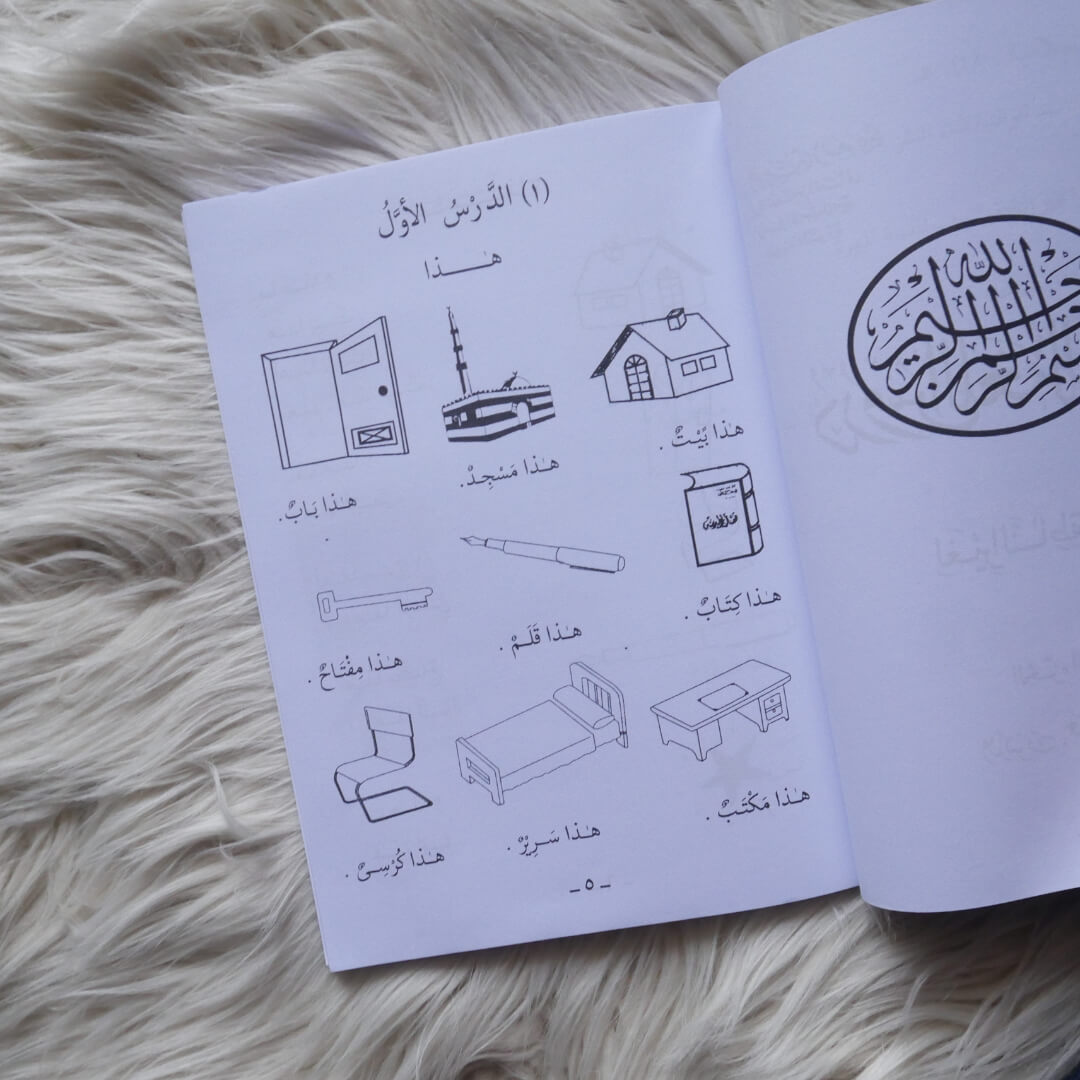 (١) الدَّرْسُ الأَوَّلُ
هـــذا
هٰذا بَيْتٌ .
هٰذا مَسْجِدٌ .
هٰذا بَابٌ .
هٰذا كِتَابٌ .
هٰذا قَلَمٌ .
هٰذا مِفْتَاحٌ .
هٰذا مَكْتَبٌ .
هٰذا سَرِيْرٌ .
هٰذا كُرْسِىٌّ .
ـ ٥ ـ
بسم الله الرحمن الرحيم